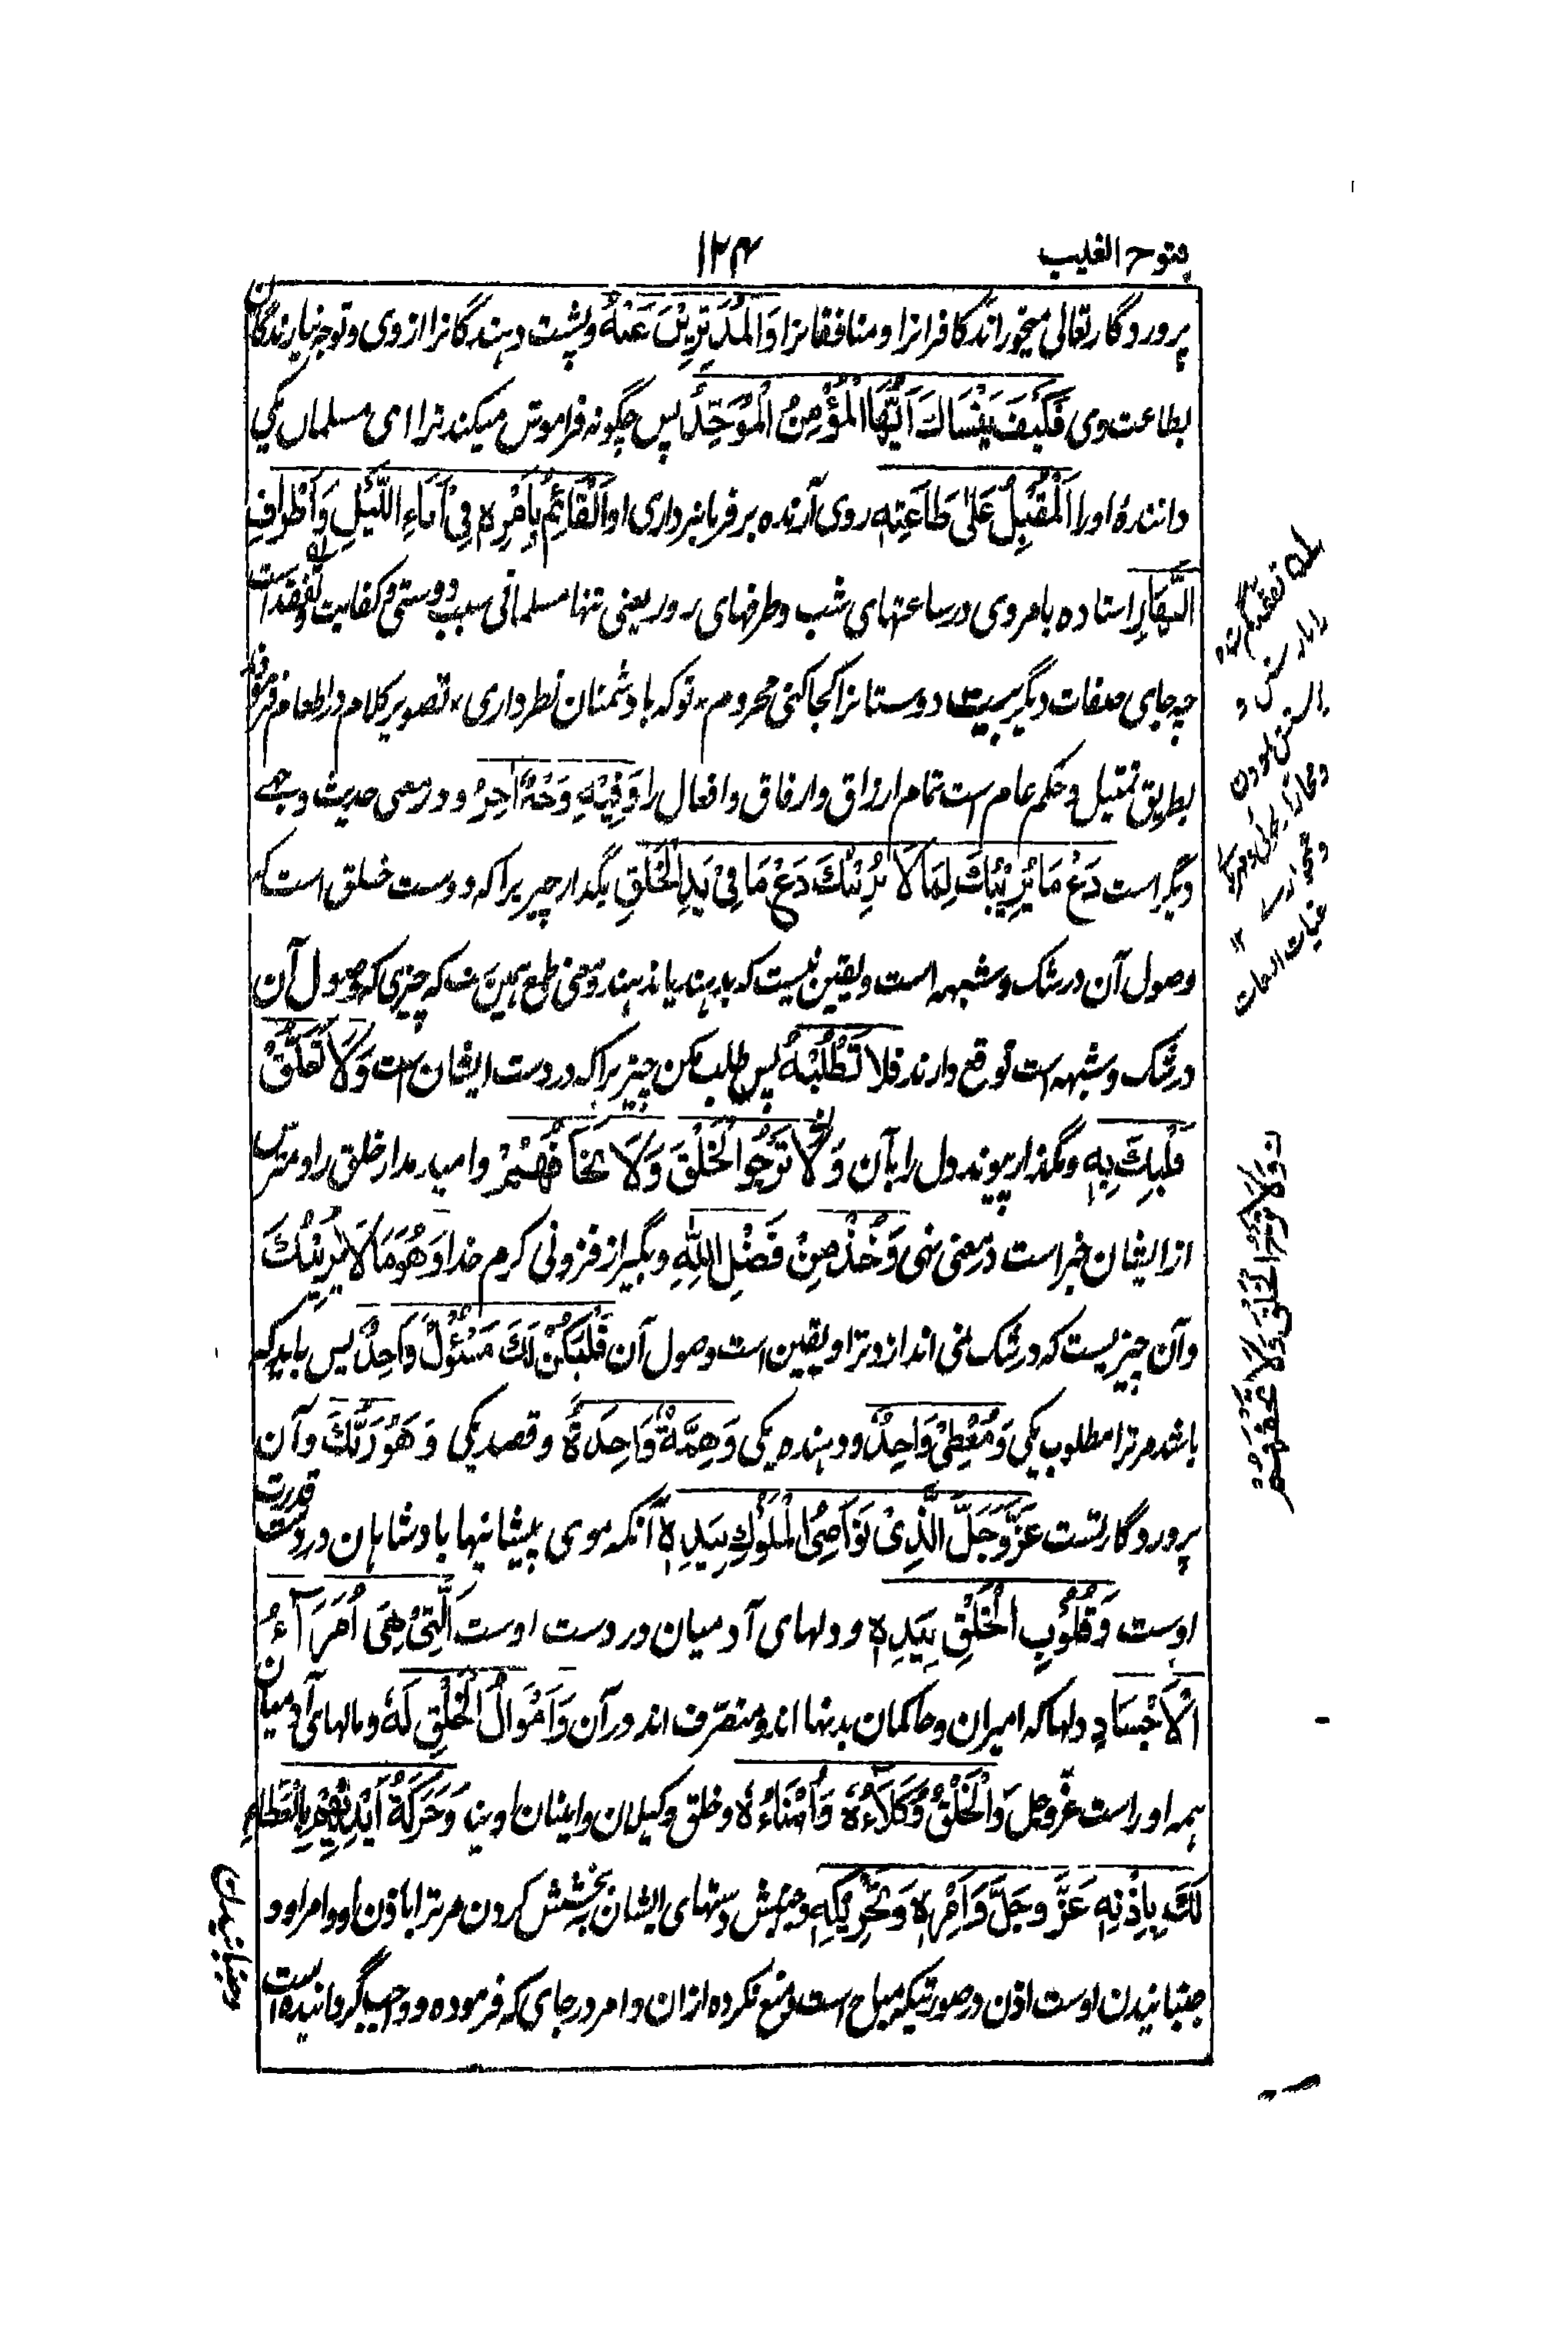 فتوح الغیب
۱۲۴
پروردگار تعالی میخوراند کافرانرا و منافقانرا وَالْمُدْبِرِیْنَ عَنْهُ و پشت دهندگانرا از وی و توجه نیارندگان
بطاعت وی فَکَیْفَ یَنْسَاكَ اَیُّهَا الْمُؤْمِنُ الْمُوَحِّدُ پس چگونه فراموش میکند ترا ای مسلمان یکی
دانندۀ او را اَلْمُقْبِلُ عَلٰی طَاعَتِهٖ روی آرنده بر فرمانبرداری او اَلْقَائِمُ بِاَمْرِهٖ فِیْ اٰنَاءِ اللَّیْلِ وَاَطْرَافِ
النَّهَارِ استاده بامر وی در ساعتهای شب و طرفهای روز یعنی تنها مسلمانی سبب دوستی و کفایت و تفقد است
چه جای صفات دیگر بیت دوستانرا کجا کنی محروم * تو که با دشمنان نظر داری * تصویر کلام در طعام
بطریق تمثیل و حکم عام است تمام ارزاق و ارفاق و افعال را وَفِیْهِ وَجْهٌ اٰخَرُ و در معنی حدیث وجهے
دیگر است دَعْ مَا یُرِیْبُكَ لِمَا لَا یُرِیْبُكَ دَعْ مَا فِیْ یَدِ الْخَلْقِ بگذار چیزیرا که در دست خلق است که
وصول آن در شک و شبهه است و یقین نیست که بدهند یا ندهند و معنی طمع همین ست که چیزی که وصول آن
در شک و شبهه است توقع دارند فلا تَطْلُبْهُ پس طلب مکن چیزیرا که در دست ایشان است وَلَا تُعَلِّقْ
قَلْبَكَ بِهٖ و مگذار پیوند دل را بآن وَلَا تَرْجُوا الْخَلْقَ وَلَا تَخَافُهُمْ و امید مدار خلق را و مترس
از ایشان خبر است در معنی نهی وَخُذْ مِنْ فَضْلِ اللّٰهِ و بگیر از فزونی کرم خدا وَهُوَ مَا لَا یُرِیْبُكَ
و آن چیزیست که در شک نمی اندازد ترا و یقین است وصول آن فَلْیَکُنْ لَكَ مَسْئُوْلٌ وَاحِدٌ پس باید که
باشد مر ترا مطلوب یکی وَمُعْطِیْ وَاحِدٌ و دهنده یکی وَهِمَّةٌ وَاحِدَةٌ و قصد یکی وَهُوَ رَبُّكَ و آن
پروردگار تست عَزَّ وَجَلَّ الَّذِیْ نَوَاصِی الْمُلُوْكِ بِیَدِهٖ آنکه موی پیشانیها بادشاهان در دست قدرت
اوست وَقُلُوْبُ الْخَلْقِ بِیَدِهٖ و دلهای آدمیان در دست اوست اَلَّتِیْ هِیَ اُمَرَآءُ
الْاَجْسَادِ دلها که امیران و حاکمان بدنها اند و متصرف اند در آن وَاَمْوَالُ الْخَلْقِ لَهٗ و مالهای آدمیان
همه او راست عز و جل وَالْخَلْقُ وُکَلَاءُهٗ وَاُمَنَاءُهٗ و خلق وکیلان و امینان اویند وَحَرَکَةُ اَیْدِیْهِمْ بِالْعَطَاءِ
لَكَ بِاِذْنِهٖ عَزَّ وَجَلَّ وَاَمْرِهٖ وَتَحْرِیْکِهٖ و جنبش دستهای ایشان ببخشش کردن مر ترا باذن او و امر او و
جنبانیدن اوست اذن در صورتیکه مباح است و منع نکرده ازان و امر در جای که فرموده و واجب گردانیده است
له تفقد گم شده
را باز جستن و
غیاث اللغات
ن وَلَا تَرْجُ الْخَلْقَ وَلَا تَخَفْهُمْ
و جنبانیدن